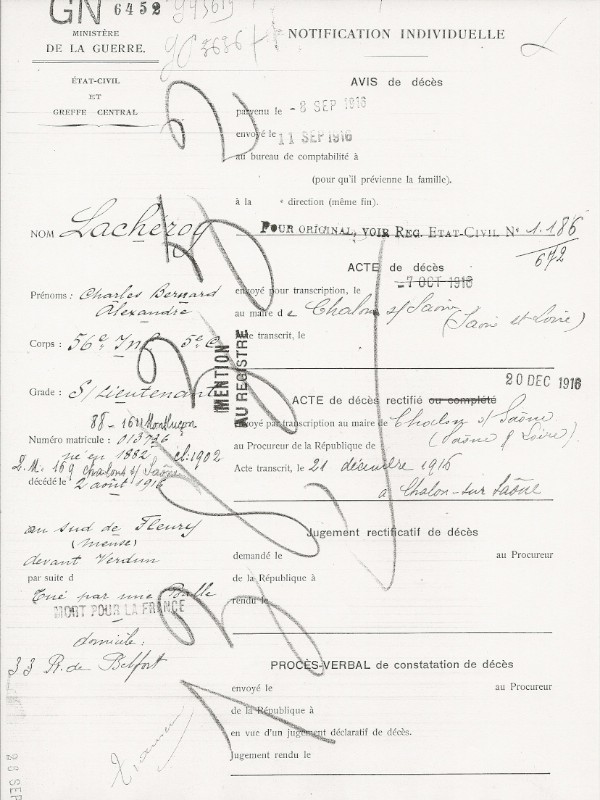 GN 6452
MINISTÈRE
DE LA GUERRE.
ÉTAT-CIVIL
ET
GREFFE CENTRAL
NOTIFICATION INDIVIDUELLE
AVIS de décès
parvenu le -8 SEP 1916
envoyé le 11 SEP 1916
au bureau de comptabilité à
(pour qu'il prévienne la famille).
à la direction (même fin).
POUR ORIGINAL, VOIR REG. ETAT-CIVIL N° 1.186
672
NOM Lacheroy
Prénoms : Charles Bernard
Alexandre
Corps : 56e Inf 5e C
Grade : S/Lieutenant
88 - 1611 Montluçon
Numéro matricule : 013726
né en 1882 cl. 1902
L.M. 169 Chalons s/ Saône
décédé le 2 août 1916
au sud de Fleury
(Meuse)
devant Verdun
par suite d
Tué par une Balle
MORT POUR LA FRANCE
domicile :
33 R. de Belfort
MENTION
AU REGISTRE
ACTE de décès
-7 OCT 1916
envoyé pour transcription, le
au maire de Chalon s/ Saône
(Saône et Loire)
Acte transcrit, le
20 DEC 1916
ACTE de décès rectifié ou complété
envoyé par transcription au maire de Chalon s/ Saône
(Saône & Loire)
au Procureur de la République de
Acte transcrit, le 21 décembre 1916
à Chalon-sur Saône
Jugement rectificatif de décès
demandé le au Procureur
de la République à
rendu le
PROCÈS-VERBAL de constatation de décès
envoyé le au Procureur
de la République à
en vue d'un jugement déclaratif de décès.
Jugement rendu le